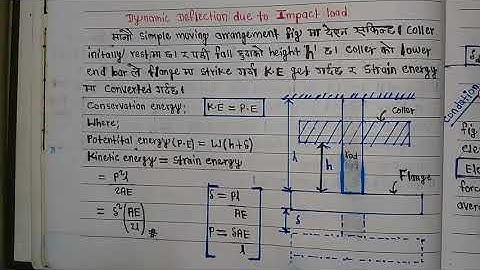 Dynamic Deflection due to Impact load
simple moving arrangement fig मा
initally rest मा छ। र यही fall हुदाको height 'h' छ। Coller को lower
end bar ले flange मा strike गर्या K.E get गर्दछ र Strain energy
मा converted गर्दछ।
Conservation energy: K.E = P.E
Where;
Potentital energy (P.E) = W(h+δ)
Kinetic energy = Strain energy
= P²l
2AE
= δ² (AE
2l)
δ = Pl
AE
P = δAE
l
Coller
rod
h
l
Flange
δ
Condition
fig
ele
Ele
force
avera